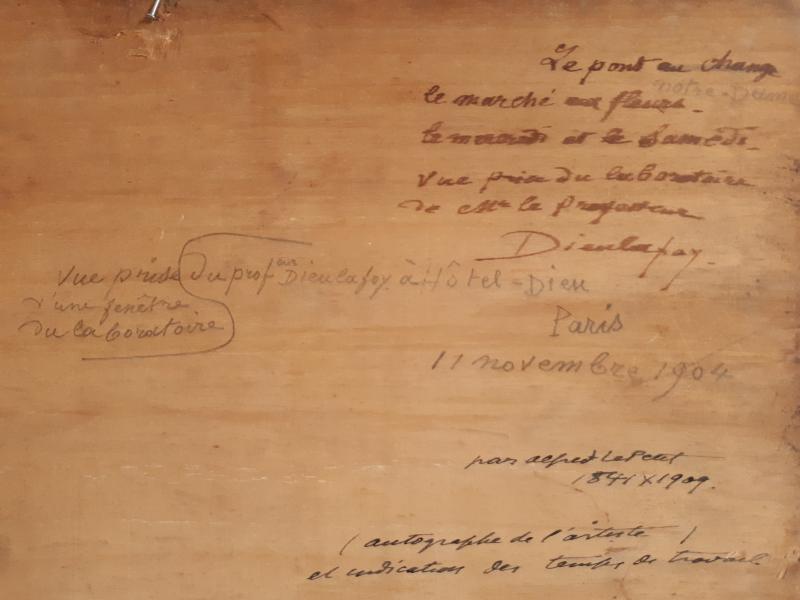 Le pont au change
notre-Dame
le marché aux fleurs.
le mercredi et le Samedi.
Vue prise du laboratoire
de Mr le Professeur
Dieulafoy.
Vue prise du profeur Dieulafoy à Hôtel-Dieu
d'une fenêtre
du laboratoire
Paris
11 novembre 1904
par alfred Le Petit
1841 X 1909.
(autographe de l'artiste)
et indication des temps de travail.